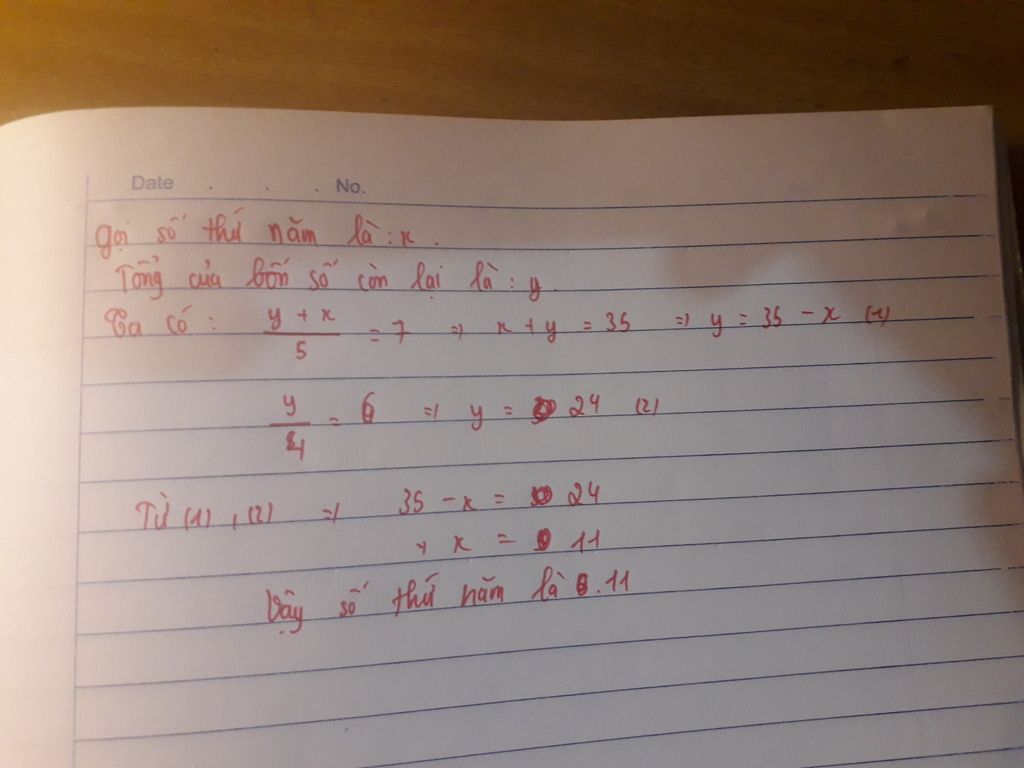 Date . . . No.
Gọi số thứ năm là : x .
Tổng của bốn số còn lại là : y
Ta có : (y + x)/5 = 7 => x + y = 35 => y = 35 - x (1)
y/4 = 6 => y = 24 (2)
Từ (1) , (2) => 35 - x = 24
=> x = 11
Vậy số thứ năm là . 11